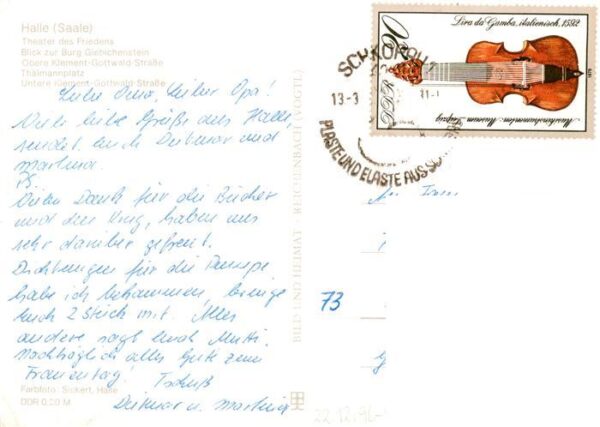 Halle (Saale)
Theater des Friedens
Blick zur Burg Giebichenstein
Obere Klement-Gottwald-Straße
Thälmannplatz
Untere Klement-Gottwald-Straße
Liebe Oma, lieber Opa!
Viele liebe Grüße aus Halle,
sendet euch Dietmar und
Martina.
PS.
Vielen Dank für die Bücher
und den Krug, haben uns
sehr darüber gefreut.
Dichtungen für die Pumpe
habe ich bekommen, bringe
euch 2 Stück mit. Alles
andere sagt euch Mutti.
Nachträglich alles Gute zum
Frauentag! Tschüß
Dietmar u. Martina
Farbfoto: Sickert, Halle
DDR 0,20 M
BILD UND HEIMAT · REICHENBACH (VOGTL)
Lira da Gamba, italienisch, 1592
Musikinstrumenten-Museum Leipzig
DDR
SCHKOPAU
13-3
11-1
PLASTE UND ELASTE AUS SCHKOPAU
73
22.12.96